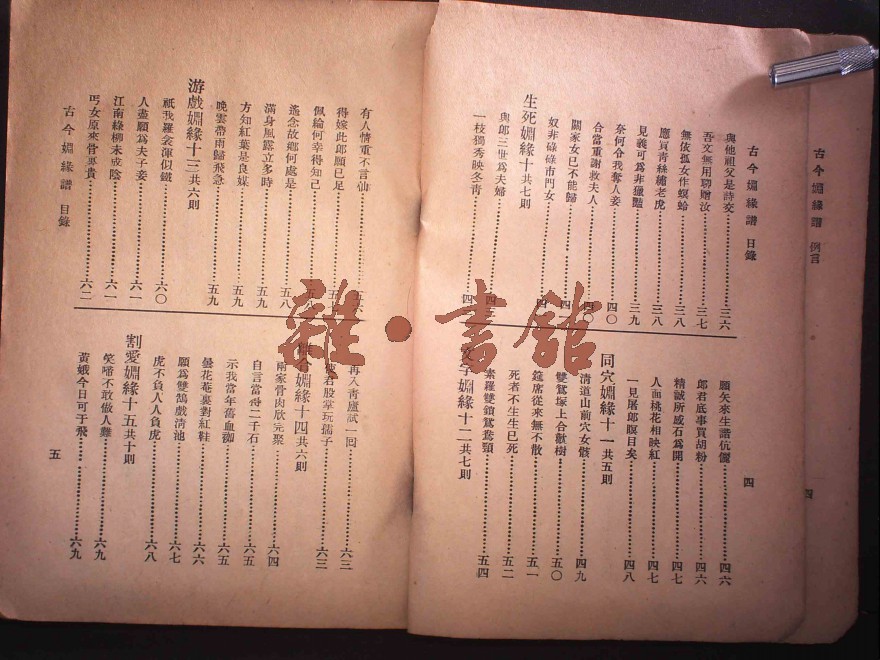 古今婣緣譜 例言
四
古今婣緣譜 目錄
四
與他祖父是詩交 三六
吾文無用聊贈汝 三七
無依孤女作螟蛉 三八
應買靑絲繡老虎 三八
見義可爲非獵豔 三九
奈何令我奪人妾 四〇
合當重謝救夫人 四〇
閥家女已不能歸 四一
奴非碌碌市門女
生死婣緣十共七則
與郎三世爲夫婦 四三
一枝獨秀映冬靑 四
願矢來生諧伉儷 四六
郎君底事買胡粉 四六
精誠所感石爲開 四七
人面桃花相映紅 四七
一見屠郎瞑目矣 四八
同穴婣緣十一共五則
淸道山前穴女骸 四九
雙鴛塚上合歡樹 五〇
筵席從來無不散 五一
死者不生生已死 五二
素羅雙鎖鴛鴦頸 五四
文字婣緣十二共七則
有人情重不言仙 五六
得嫁此郎願已足
佩綸何幸得知己
遙念故鄉何處是 五八
滿身風露立多時 五九
方知紅葉是良媒 五九
晚雲帶雨歸飛急 五九
游戲婣緣十三共六則
祇我羅衾渾似鐵 六〇
人盡願爲夫子妾 六一
江南綠柳未成陰 六一
丐女原來骨亦貴 六二
再入靑廬試一囘 六三
君股掌玩孺子 六三
合婣緣十四共六則
兩家骨肉欣完聚 六四
自言當得二千石 六五
示我當年舊血 六五
曇花菴裏對紅鞋 六六
願爲雙鵠戲淸池 六七
虎不負人人負虎 六八
割愛婣緣十五共十則
笑啼不敢做人難 六九
黃娥今日可于飛 六九
古今婣緣譜 目錄
五
雜·書館